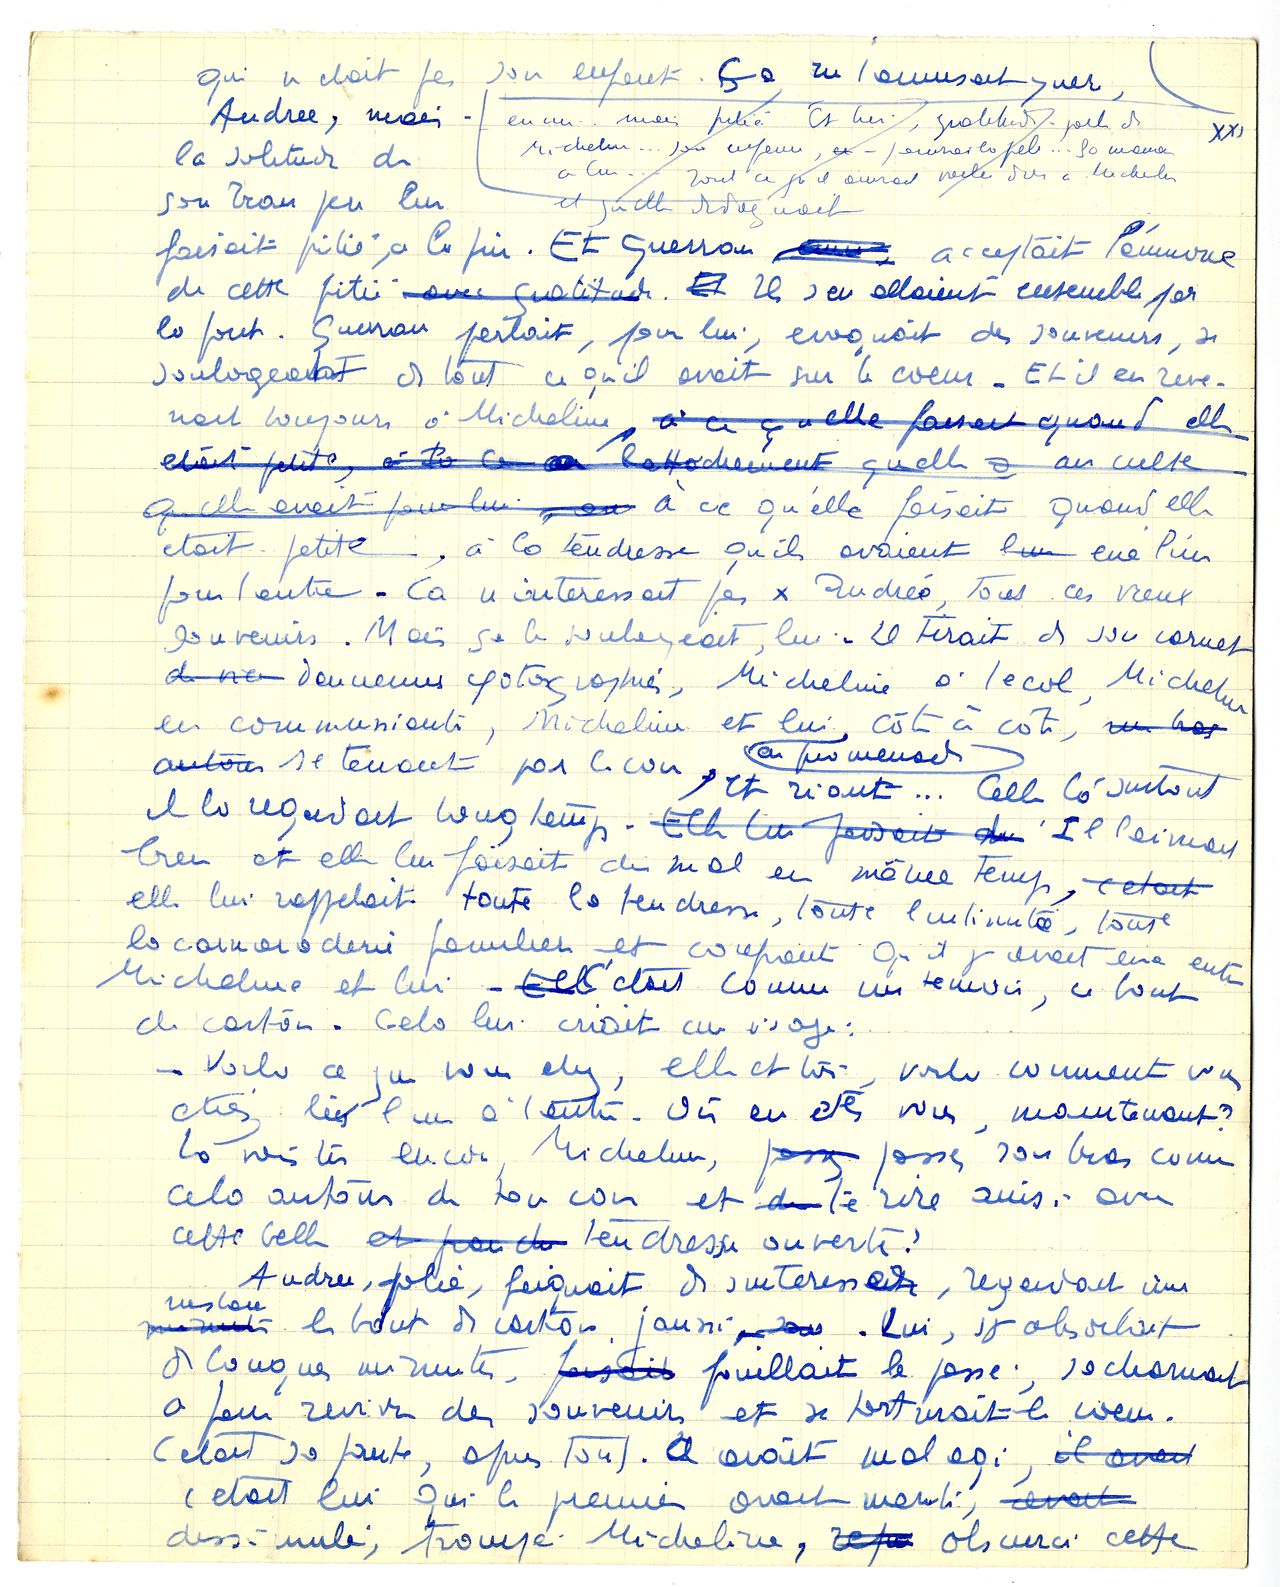 qui n'était pas son enfant. Ça ne l'amusait guère,
Andrée, mais
ennui mais pitié Et lui, gratitude parle de
Micheline... son enfance, pourrait la ... Sa maman
à lui... Tout ce qu'il aurait voulu dire à Micheline
et qu'elle dédaignait
XXI
la solitude de
son trau peu lui
faisait pitié, à la fin. Et Guerran acceptait l'aumône
de cette pitié avec gratitude. Et Ils s'en allaient ensemble par
le pont. Guerran parlait, pour lui, evoquait des souvenirs, se
soulageait de tout ce qu'il avait sur le coeur - Et il en reve-
nait toujours à Micheline, à ce qu'elle faisait quand elle
était petite, à l'attachement qu'elle au culte
qu'elle avait pour lui à ce qu'elle faisait quand elle
était petite, à la tendresse qu'ils avaient eue l'un
pour l'autre - Ca n'interessait pas Andrée, tous ces vieux
souvenirs. Mais ça le soulageait, lui. Il tirait de son carnet
d'anciennes photographies, Micheline à l'école, Micheline
en communiante, Micheline et lui, côte à côte, un bras
autour se tenant par le cou, en promenade
et riant... Celle là surtout
il la regardait longtemps - Elle lui faisait du Il l'aimait
bien et elle lui faisait du mal en même temps, c'était
elle lui rappelait toute la tendresse, toute l'intimité, toute
la camaraderie familière et confiante qu'il y avait eue entre
Micheline et lui - Elle C'était comme un témoin, ce bout
de carton - Cela lui criait au visage:
- Voilà ce que vous étiez, elle et toi, voilà comment vous
étiez liés l'un à l'autre - Où en êtes vous, maintenant?
La vois-tu encore, Micheline, passer passer son bras comme
cela autour de ton cou et de te rire ainsi avec
cette belle et tendresse ouverte?
Andrée, polie, feignait de s'interesser, regardait une
instant
minute le bout de carton jauni. Lui, s'y absorbait
de longues minutes, faisait fouillait le passé, s'acharnait
à faire revivre des souvenirs et se torturait le coeur.
C'était sa faute, après tout. Il avait mal agi, il avait
c'était lui qui le premier avait menti, avait
dissimulé, trompé Micheline, obscurci cette